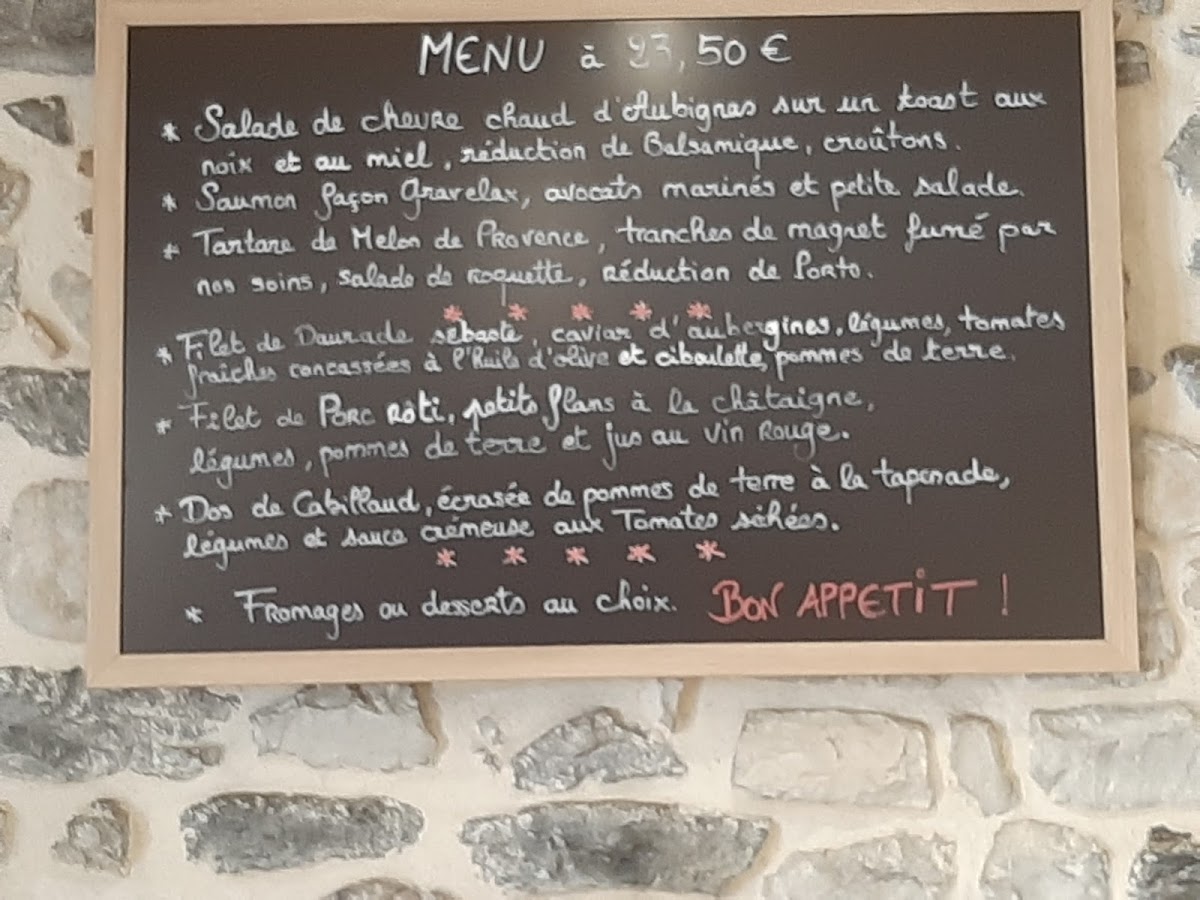 MENU à 23,50 €
* Salade de chevre chaud d'Aubignas sur un toast aux
noix et au miel, réduction de Balsamique, croûtons.
* Saumon façon Gravelax, avocats marinés et petite salade.
* Tartare de Melon de Provence, tranches de magret fumé par
nos soins, salade de roquette, réduction de Porto.
* * * * *
* Filet de Daurade sébaste, caviar d'aubergines, légumes, tomates
fraîches concassées à l'Huile d'olive et ciboulette, pommes de terre.
* Filet de Porc Rôti, petits flans à la châtaigne,
légumes, pommes de terre et jus au Vin Rouge.
* Dos de Cabillaud, écrasée de pommes de terre à la tapenade,
légumes et sauce crémeuse aux Tomates séhées.
* * * * *
* Fromages ou desserts au choix. BON APPETIT !